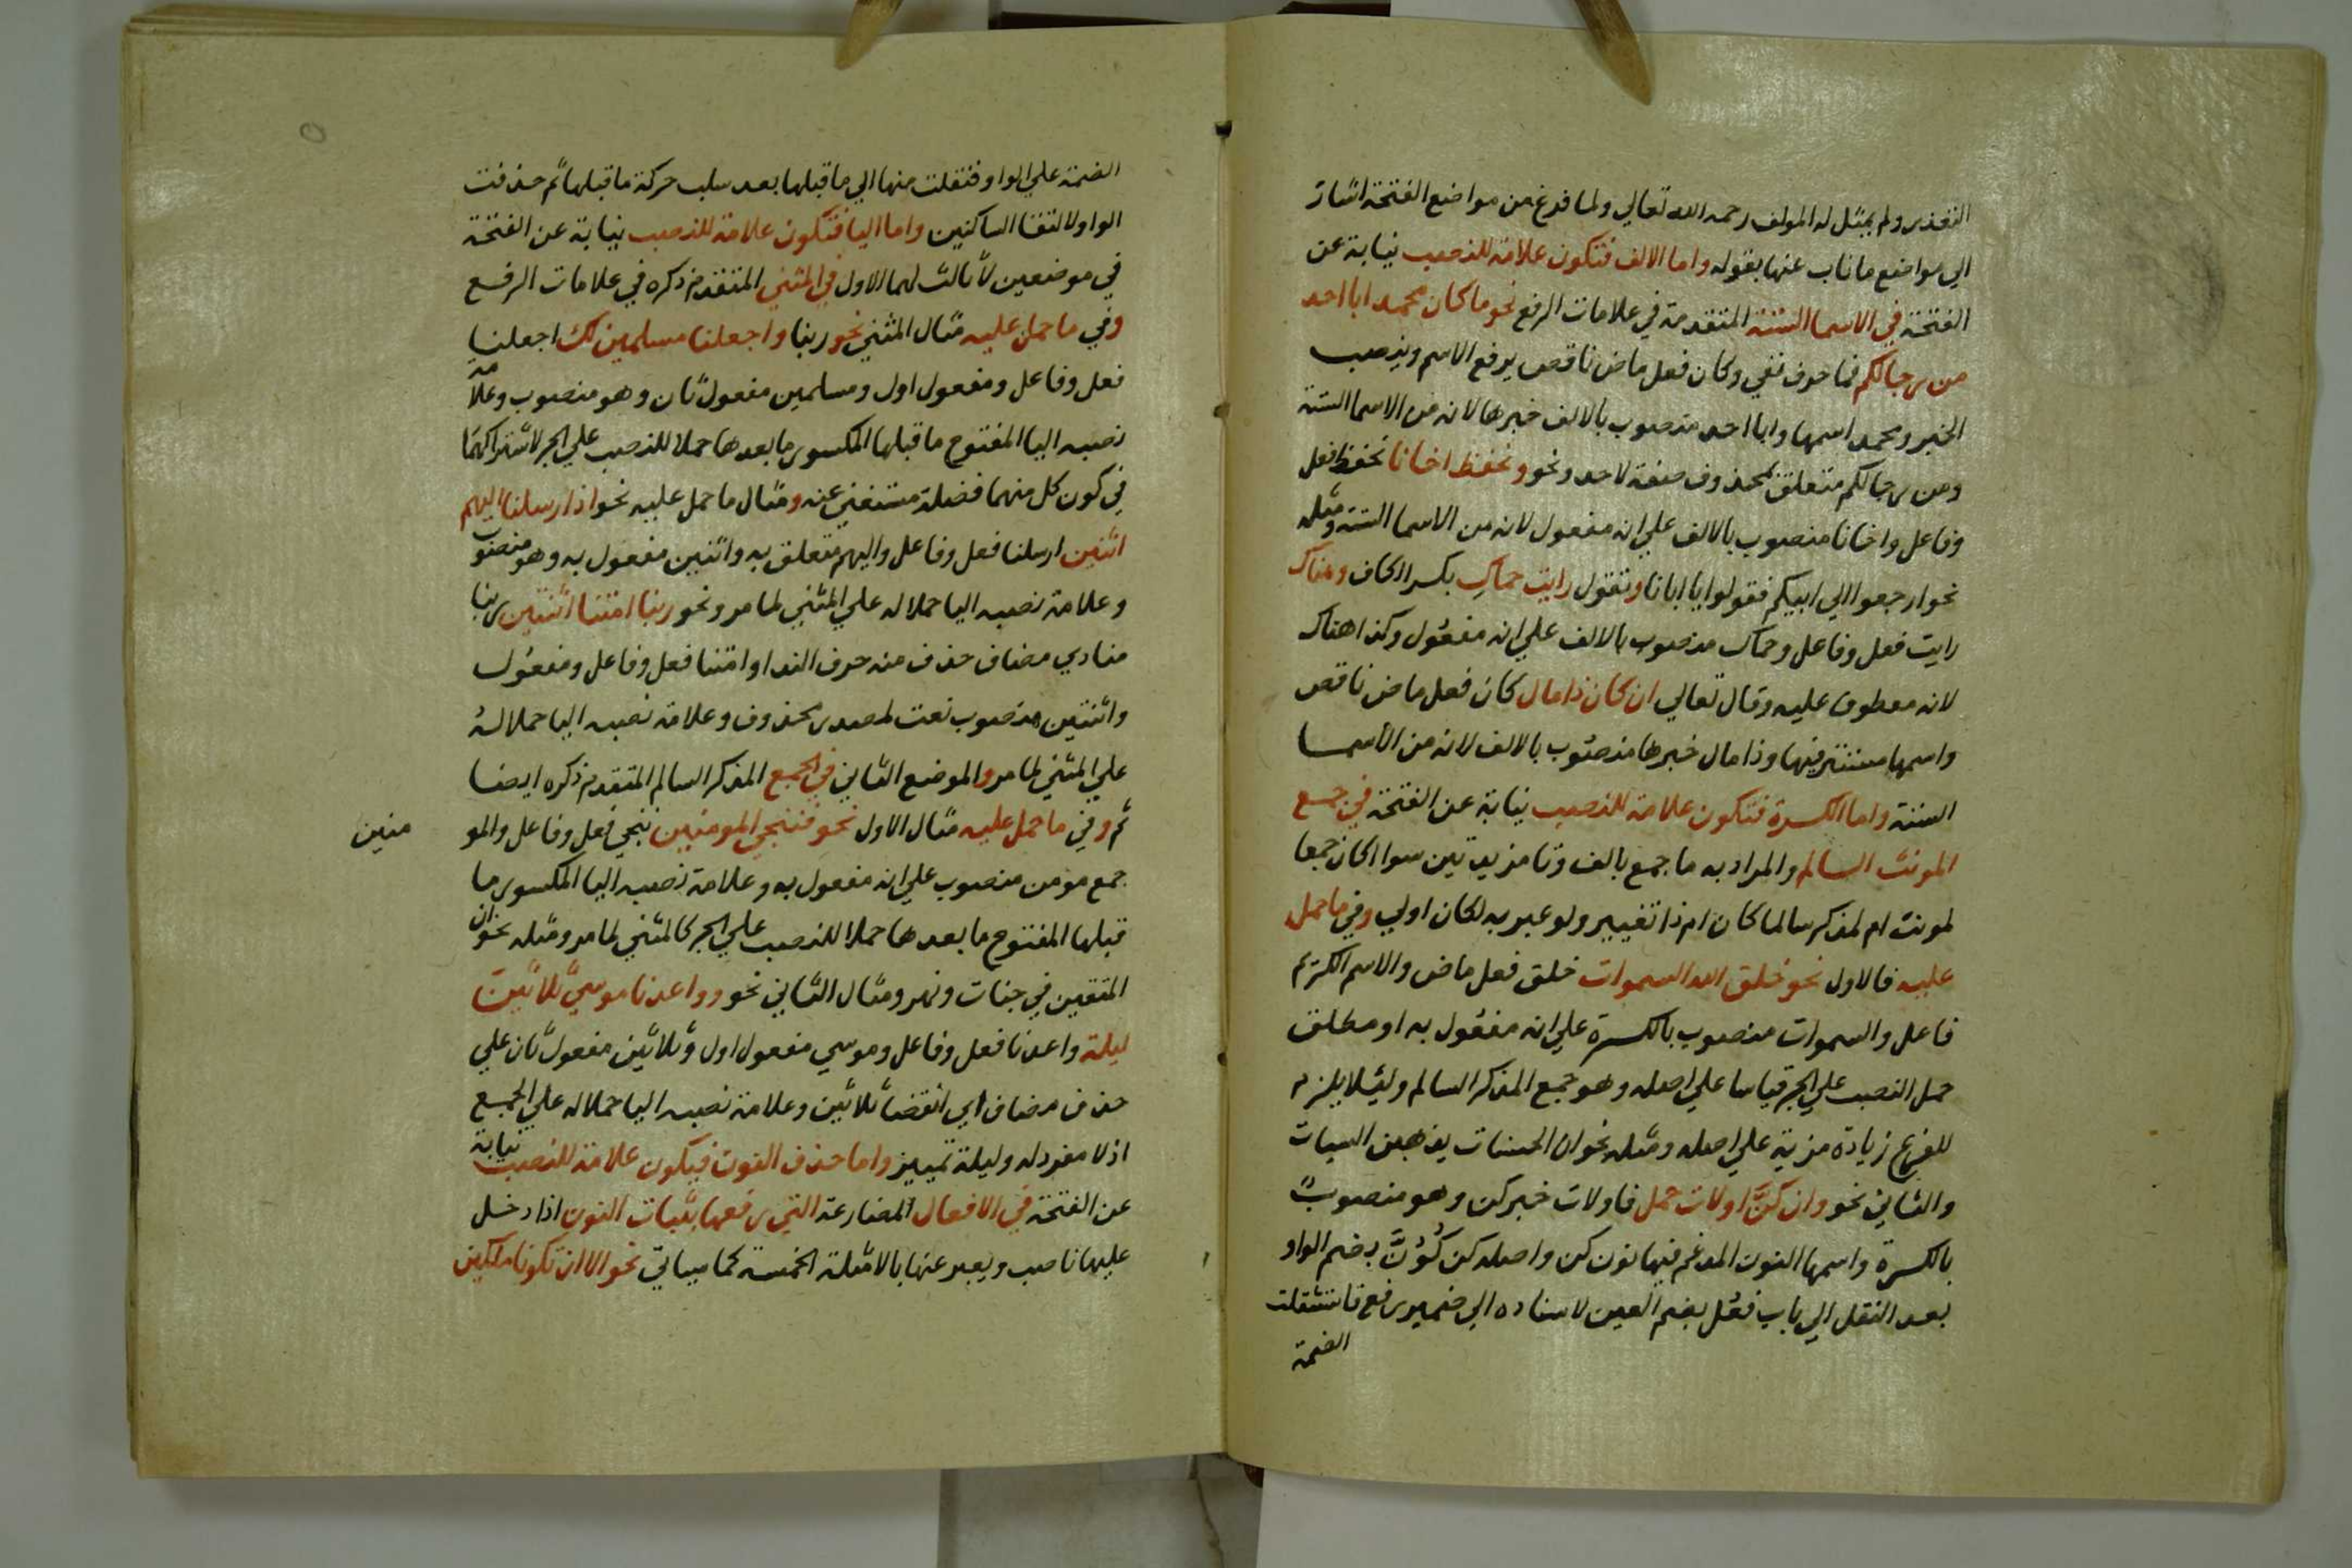 التعذر ولم يمثل له المولف رحمه الله تعالي ولما فرغ من مواضع الفتحة اشار
الي مواضع ما ناب عنها بقوله واما الالف فتكون علامة للنصب نيابة عن
الفتحة في الاسما الستة المتقدمة في علامات الرفع نحو ما كان محمد ابا احد
من رجالكم فما حرف نفي وكان فعل ماض ناقص يرفع الاسم وينصب
الخبر ومحمد اسمها وابا احد منصوب بالالف خبرها لانه من الاسما الستة
ومن رجالكم متعلق بمحذوف صفة لاحد ونحو ونحفظ اخانا نحفظ فعل
وفاعل واخانا منصوب بالالف علي انه مفعول لانه من الاسما الستة ومثله
نحو ارجعوا الي ابيكم فقولوا يا ابانا وتقول رايت حماكِ بكسر الكاف وهناك
رايت فعل وفاعل وحماك منصوب بالالف علي انه مفعول وكذا هناك
لانه معطوف عليه وقال تعالي ان كان ذا مال كان فعل ماض ناقص
واسمها مستتر فيها وذا مال خبرها منصوب بالالف لانه من الاسما
الستة واما الكسرة فتكون علامة للنصب نيابة عن الفتحة في جمع
المونث السالم والمراد به ما جمع بالف وتا مزيدتين سوا كان جمعا
لمونث ام لمذكر سالما كان ام ذا تغيير ولو عبر به لكان اولي وفي ما حمل
عليه فالاول نحو خلق الله السموات خلق فعل ماض والاسم الكريم
فاعل والسموات منصوب بالكسرة علي انه مفعول به او مطلق
حمل النصب علي الجر قياسا علي اصله وهو جمع المذكر السالم وليلا يلزم
للفرع زيادة مزية علي اصله ومثله نحو ان الحسنات يذهبن السيات
والثاني نحو وان كنَّ اولات حمل فاولات خبر كن وهو منصوب
بالكسرة واسمها النون المدغم فيها نون كن واصله كن كَوُنَّ بضم الواو
بعد النقل الي باب فعُل بضم العين لاسناده الي ضمير رفع فاستثقلت
الضمة
الضمة علي الواو فنقلت منها الي ما قبلها بعد سلب حركة ما قبلها ثم حذفت
الواو لالتقا الساكنين واما اليا فتكون علامة للنصب نيابة عن الفتحة
في موضعين لا ثالث لهما الاول في المثني المتقدم ذكره في علامات الرفع
وفي ما حمل عليه مثال المثني نحو ربنا واجعلنا مسلمين لك اجعلنا
فعل وفاعل ومفعول اول ومسلمين مفعول ثان وهو منصوب وعلامة
نصبه اليا المفتوح ما قبلها المكسور ما بعدها حملا للنصب علي الجر لاشتراكهما
في كون كل منهما فضلة مستغني عنه ومثال ما حمل عليه نحو اذ ارسلنا اليهم
اثنين ارسلنا فعل وفاعل واليهم متعلق به واثنين مفعول به وهو منصوب
وعلامة نصبه اليا حملا له علي المثني لما مر ونحو ربنا امتنا اثنتين ربنا
منادي مضاف حذف منه حرف الندا وامتنا فعل وفاعل ومفعول
واثنتين منصوب نعت لمصدر محذوف وعلامة نصبه اليا حملا له
علي المثني لما مر والموضع الثاني في الجمع المذكر السالم المتقدم ذكره ايضا
ثم وفي ما حمل عليه مثال الاول نحو ننجي المومنين ننجي فعل وفاعل والمو
منين
جمع مومن منصوب علي انه مفعول به وعلامة نصبه اليا المكسور ما
قبلها المفتوح ما بعدها حملا للنصب علي الجر كالمثني لما مر ومثله نحو ان
المتقين في جنات ونهر ومثال الثاني نحو وواعدنا موسي ثلاثين
ليلة واعدنا فعل وفاعل وموسي مفعول اول وثلاثين مفعول ثان علي
حذف مضاف اي انقضا ثلاثين وعلامة نصبه اليا حملا له علي الجمع
اذ لا مفرد له وليلة تمييز واما حذف النون فيكون علامة للنصب نيابة
عن الفتحة في الافعال المضارعة التي رفعها بثبات النون اذا دخل
عليها ناصب ويعبر عنها بالامثلة الخمسة كما سياتي نحو الا ان تكونا ملكين